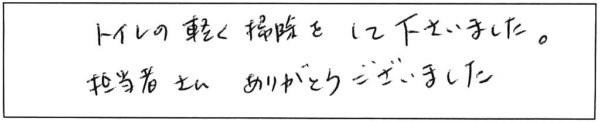 トイレの軽く掃除をして下さいました。
担当者さん ありがとうございました